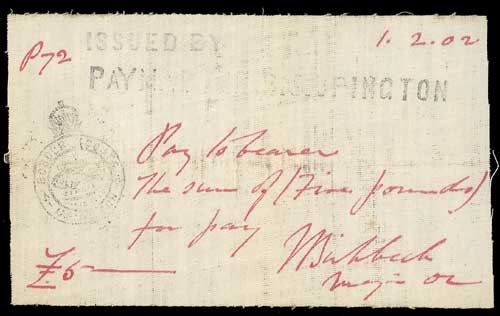 ISSUED BY
P72 1.2.02
UPINGTON
Pay to bearer
the sum of (Five pounds)
for pay
£5
Birkbeck
Major OC